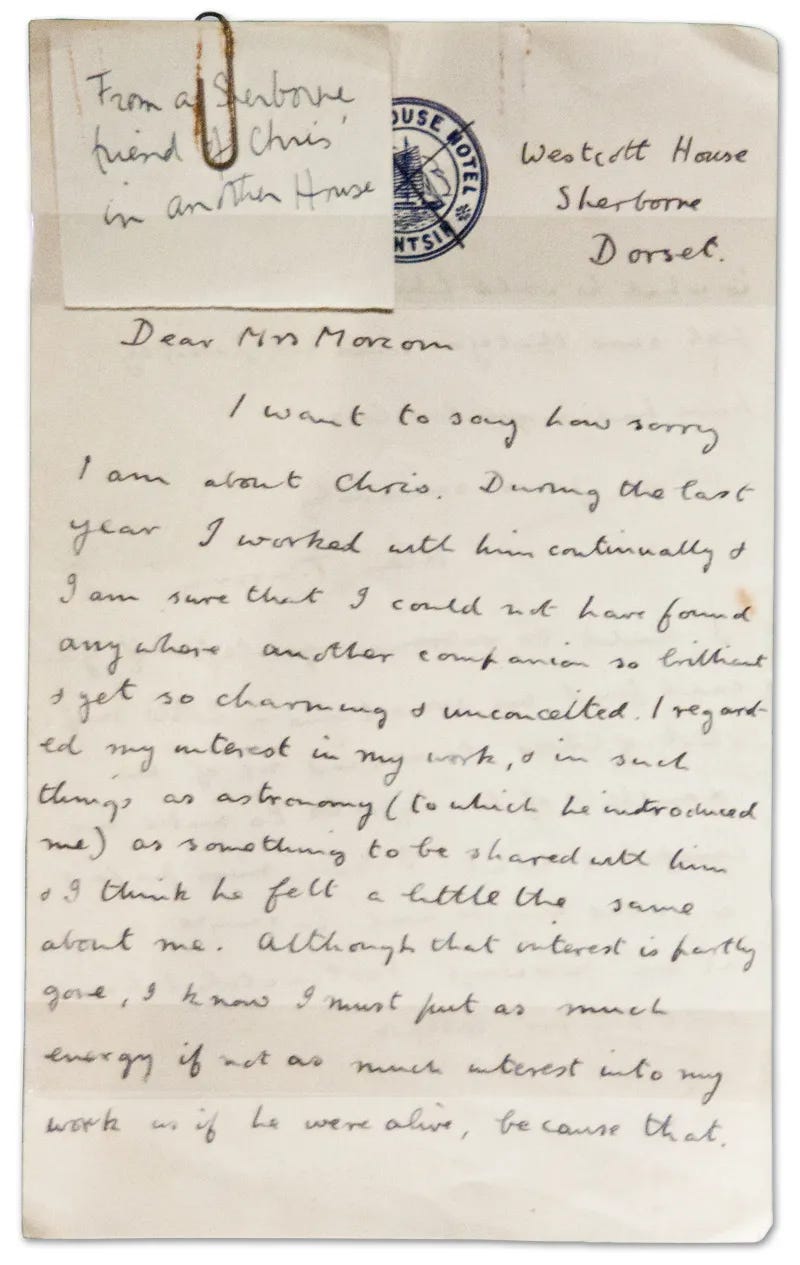 From a Sherborne
friend of Chris'
in another House
OUSE HOTEL
NTSIR
Westcott House
Sherborne
Dorset.
Dear Mrs Morcom
I want to say how sorry
I am about Chris. During the last
year I worked with him continually &
I am sure that I could not have found
anywhere another companion so brilliant
& yet so charming & unconceited. I regard-
ed my interest in my work, & in such
things as astronomy (to which he introduced
me) as something to be shared with him
& I think he felt a little the same
about me. Although that interest is partly
gone, I know I must put as much
energy if not as much interest into my
work as if he were alive, because that.